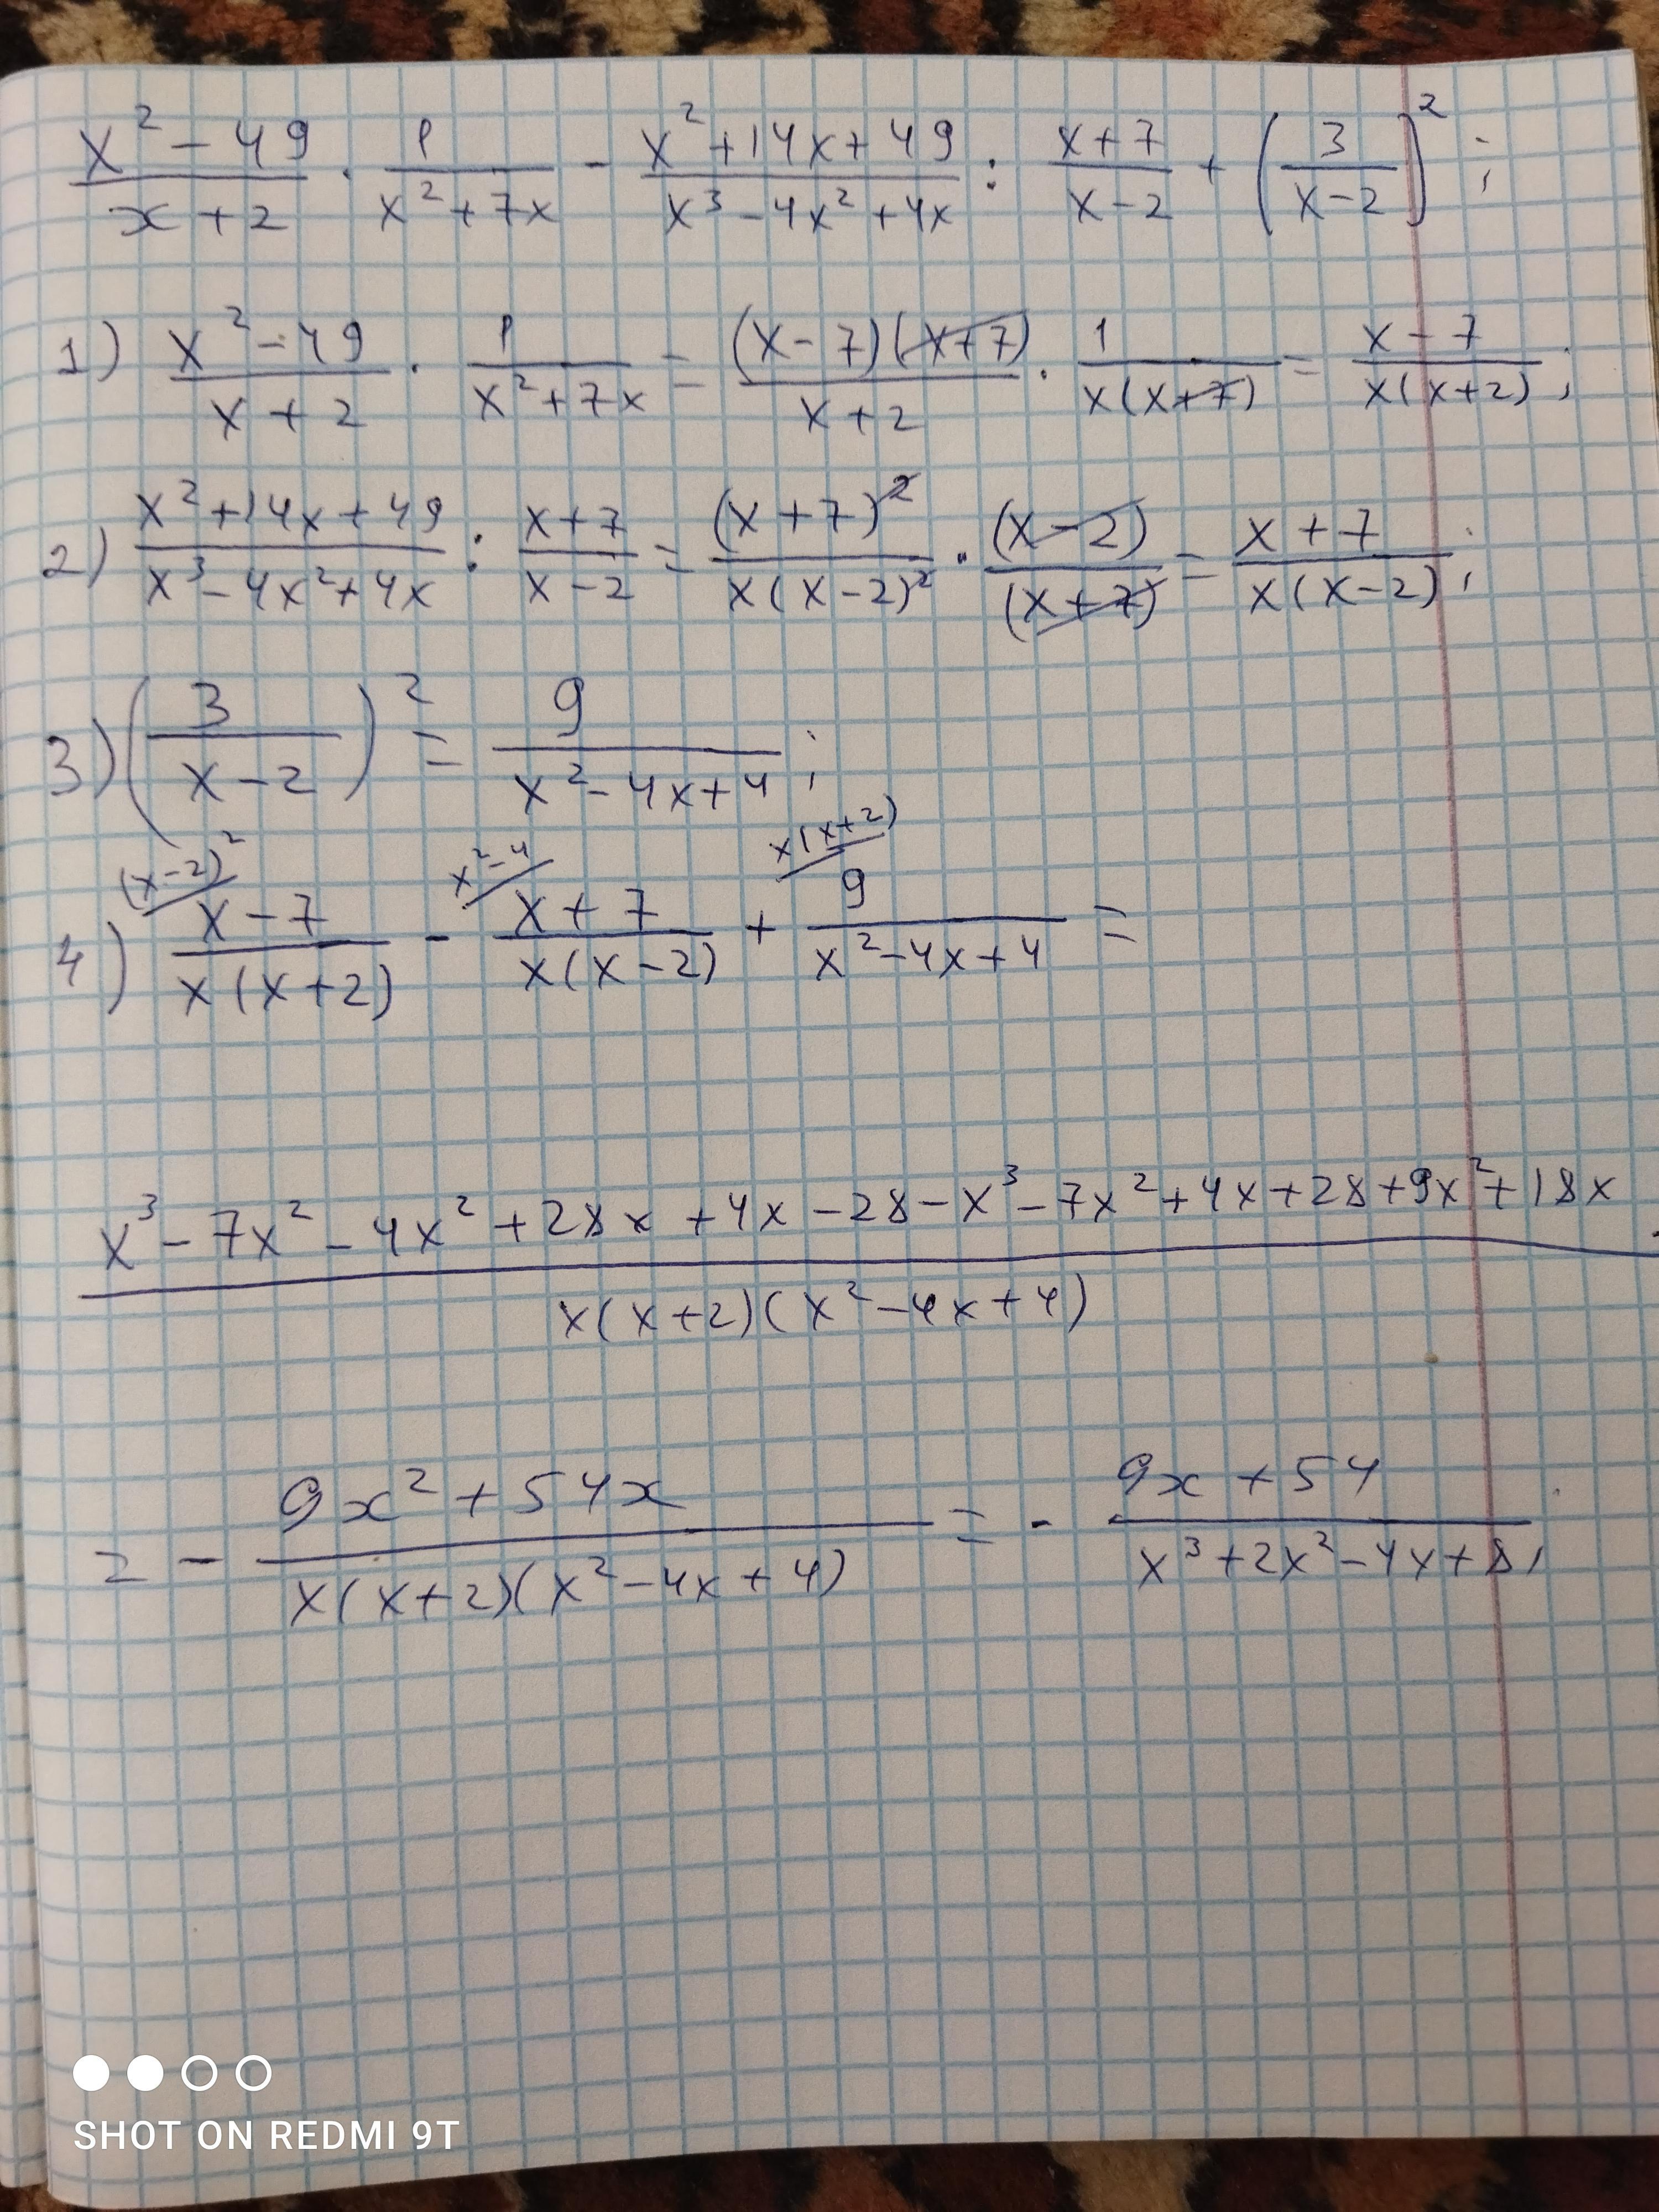 (x² - 49)/(x + 2) · 1/(x² + 7x) - (x² + 14x + 49)/(x³ - 4x² + 4x) : (x + 7)/(x - 2) + (3/(x - 2))² ;
1) (x² - 49)/(x + 2) · 1/(x² + 7x) = ((x - 7)(x + 7))/(x + 2) · 1/(x(x + 7)) = (x - 7)/(x(x + 2)) ;
2) (x² + 14x + 49)/(x³ - 4x² + 4x) : (x + 7)/(x - 2) = (x + 7)²/(x(x - 2)²) · (x - 2)/(x + 7) = (x + 7)/(x(x - 2)) ;
3) (3/(x - 2))² = 9/(x² - 4x + 4) ;
(x - 2)² x² - 4 x(x + 2)
4) (x - 7)/(x(x + 2)) - (x + 7)/(x(x - 2)) + 9/(x² - 4x + 4) =
(x³ - 7x² - 4x² + 28x + 4x - 28 - x³ - 7x² + 4x + 28 + 9x² + 18x)/(x(x + 2)(x² - 4x + 4))
= - (9x² + 54x)/(x(x + 2)(x² - 4x + 4)) = - (9x + 54)/(x³ + 2x² - 4x + 8) ;
SHOT ON REDMI 9T